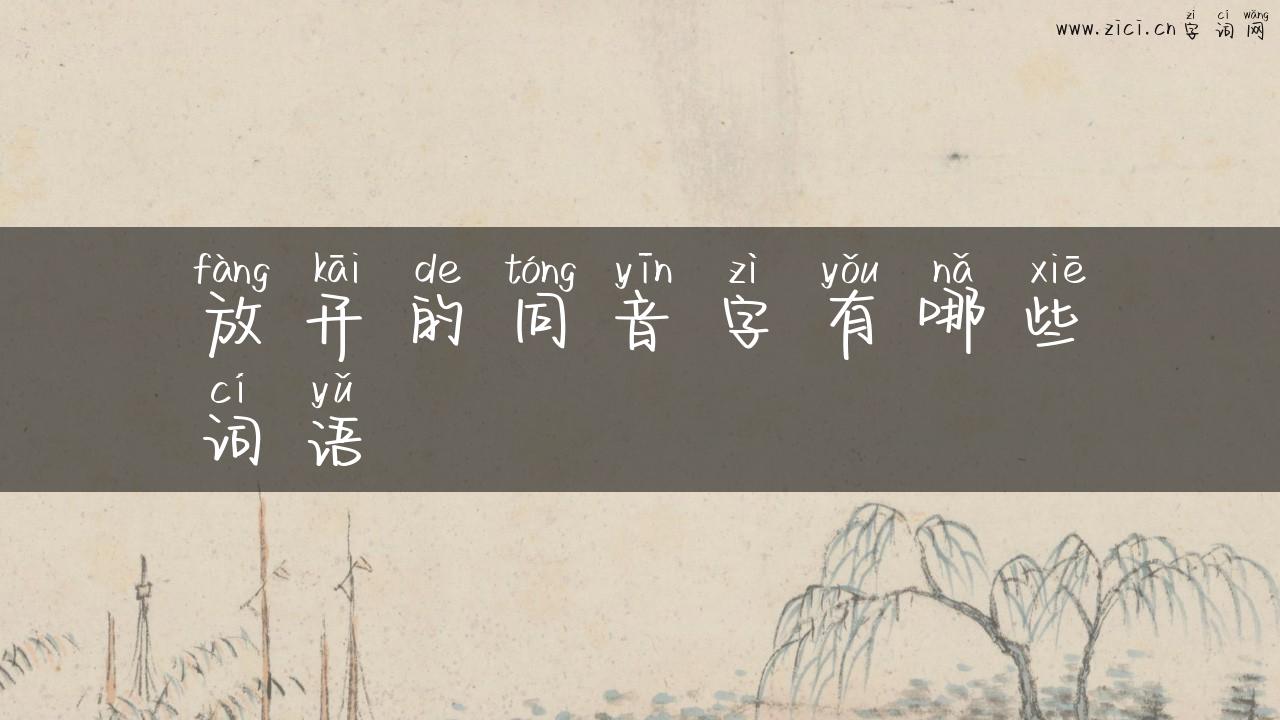 zì cí wǎng
www.zici.cn 字词网
fàng kāi de tóng yīn zì yǒu nǎ xiē
放开的同音字有哪些
cí yǔ
词语